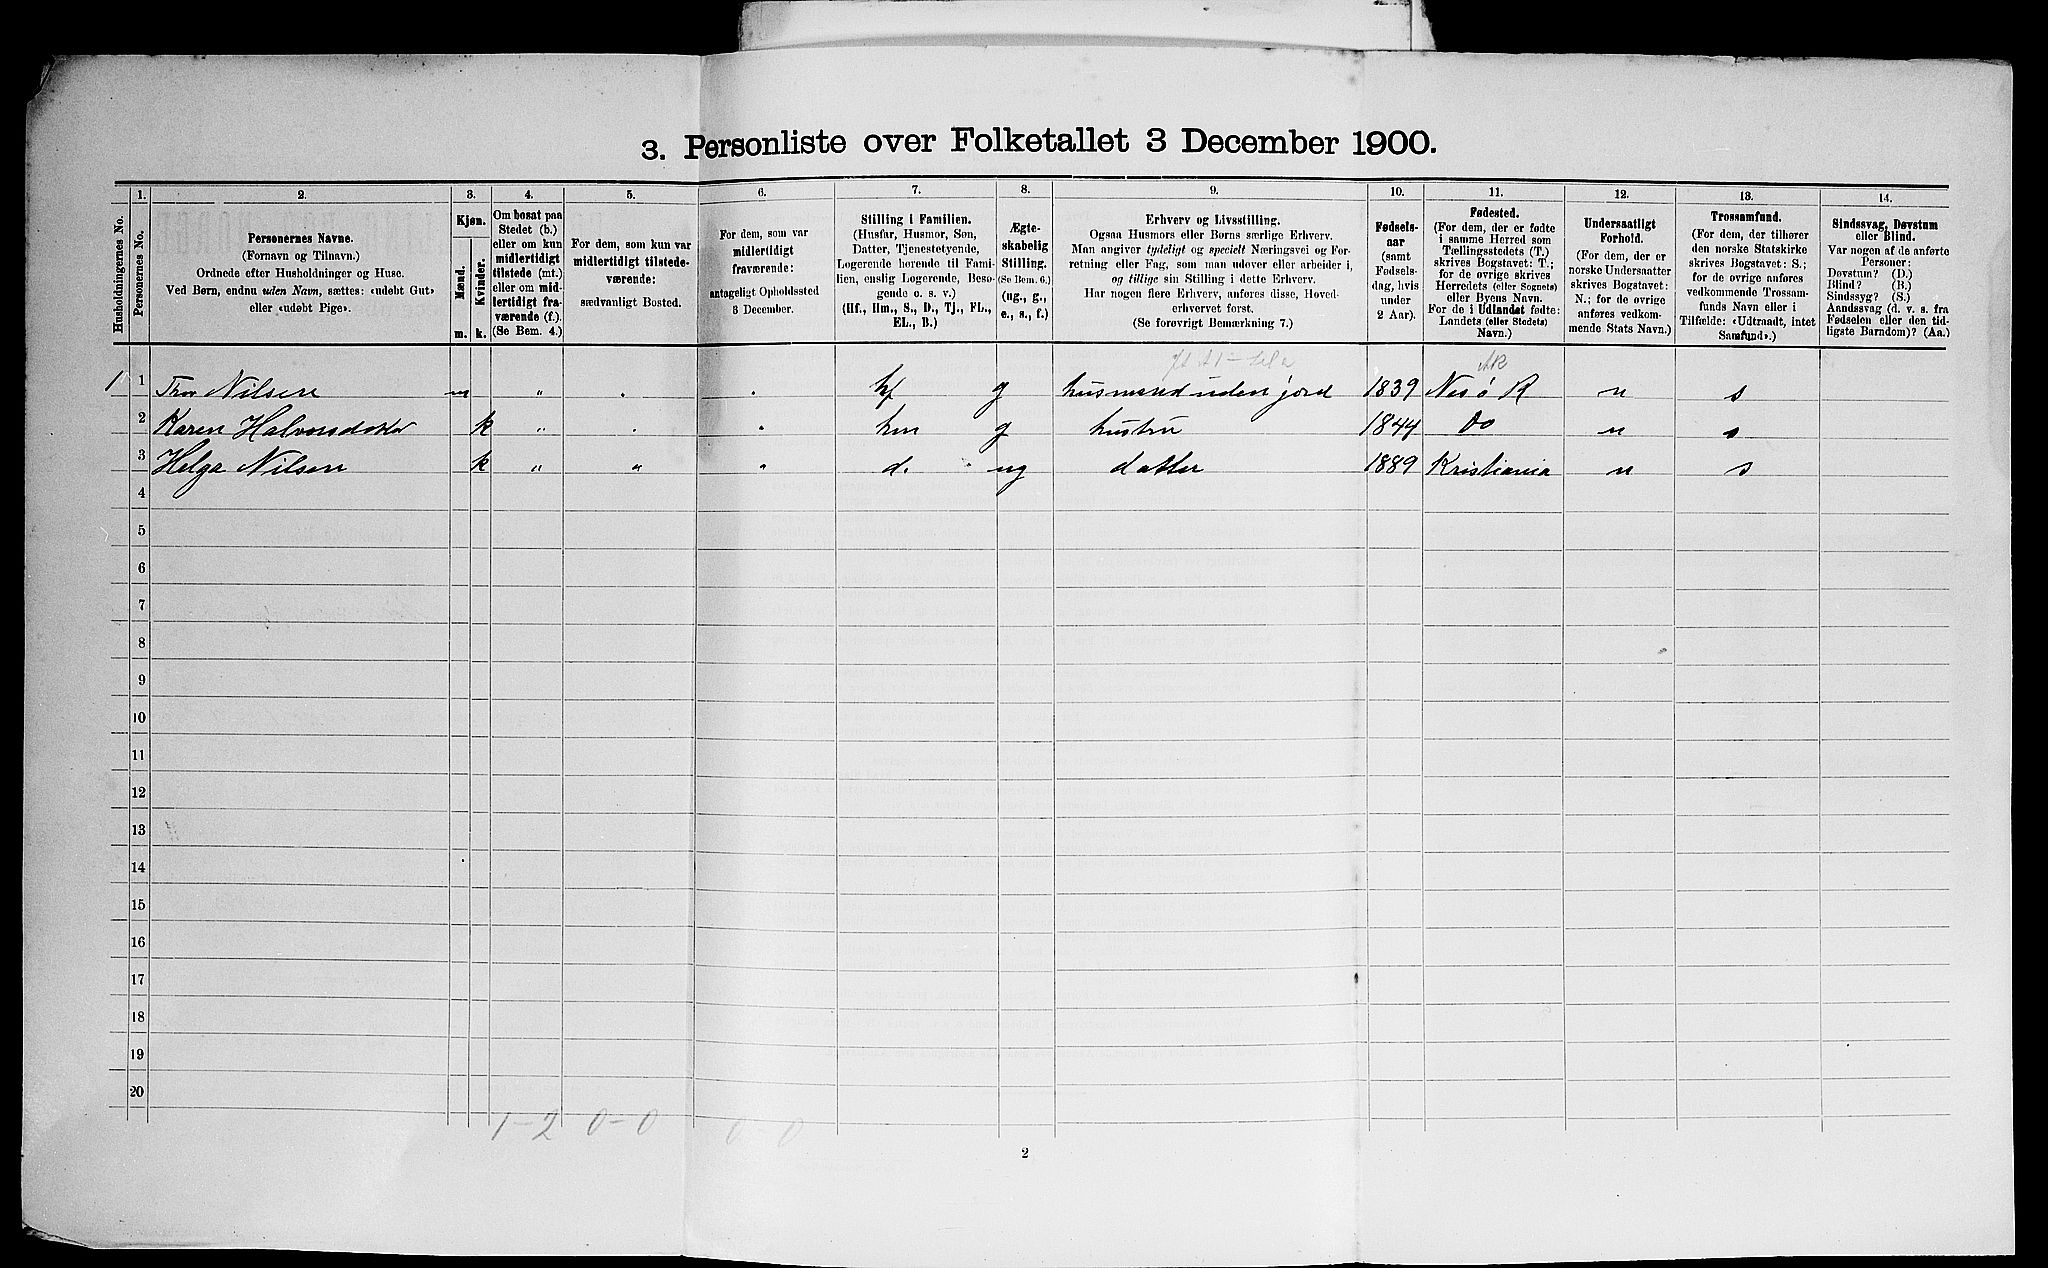 3. Personliste over Folketallet 3 December 1900.
Husholdningernes No.
1.
Personernes No.
2.
Personernes Navne.
(Fornavn og Tilnavn.)
Ordnede efter Husholdninger og Huse.
Ved Børn, endnu uden Navn, sættes: «udøbt Gut»
eller «udøbt Pige».
3.
Kjøn.
Mænd.
Kvinder.
m. k.
4.
Om bosat paa
Stedet (b.)
eller om kun
midlertidigt
tilstede (mt.)
eller om mid-
lertidigt fra-
værende (f.)
(Se Bem. 4.)
5.
For dem, som kun var
midlertidigt tilstede-
værende:
sædvanligt Bosted.
6.
For dem, som var
midlertidigt
fraværende:
antageligt Opholdssted
3 December.
7.
Stilling i Familien.
(Husfar, Husmor, Søn,
Datter, Tjenestetyende,
Logerende hørende til Fami-
lien, enslig Logerende, Besø-
gende o. s. v.)
(Hf., Hm., S., D., Tj., FL.,
EL., B.)
8.
Ægte-
skabelig
Stilling.
(Se Bem. 6.)
(ug., g.,
e., s., f.)
9.
Erhverv og Livsstilling.
Ogsaa Husmors eller Børns særlige Erhverv.
Man angiver tydeligt og specielt Næringsvei og For-
retning eller Fag, som man udøver eller arbeider i,
og tillige sin Stilling i dette Erhverv.
Har nogen flere Erhverv, anføres disse, Hoved-
erhvervet først.
(Se forøvrigt Bemærkning 7.)
10.
Fødsels-
aar
(samt
Fødsels-
dag, hvis
under
2 Aar).
11.
Fødested.
(For dem, der er fødte
i samme Herred som
Tællingsstedets (T.)
skrives Bogstavet: T.;
for de øvrige skrives
Herredets (eller Sognets)
eller Byens Navn.
For de i Udlandet fødte:
Landets (eller Stedets)
Navn.)
12.
Undersaatligt
Forhold.
(For dem, der er
norske Undersaatter
skrives Bogstavet:
N.; for de øvrige
anføres vedkom-
mende Stats Navn.)
13.
Trossamfund.
(For dem, der tilhører
den norske Statskirke
skrives Bogstavet: S.;
for de øvrige anføres
vedkommende Trossam-
funds Navn eller i
Tilfælde: «Udtraadt, intet
Samfund».)
14.
Sindssvag, Døvstum
eller Blind.
Var nogen af de anførte
Personer:
Døvstum? (D.)
Blind? (B.)
Sindssyg? (S.)
Aandssvag (d. v. s. fra
Fødselen eller den tid-
ligste Barndom)? (Aa.)
1 1 Thor Nilsen m " " " hf g husmand uden jord 1839 Nesö R n s
2 Karen Halvorsdatter k " " " hm g hustru 1844 Do n s
3 Helga Nilsen k " " " d. ug datter 1889 Kristiania n s
4
5
6
7
8
9
10
11
12
13
14
15
16
17
18
19
20
1-2 0-0 0-0
2